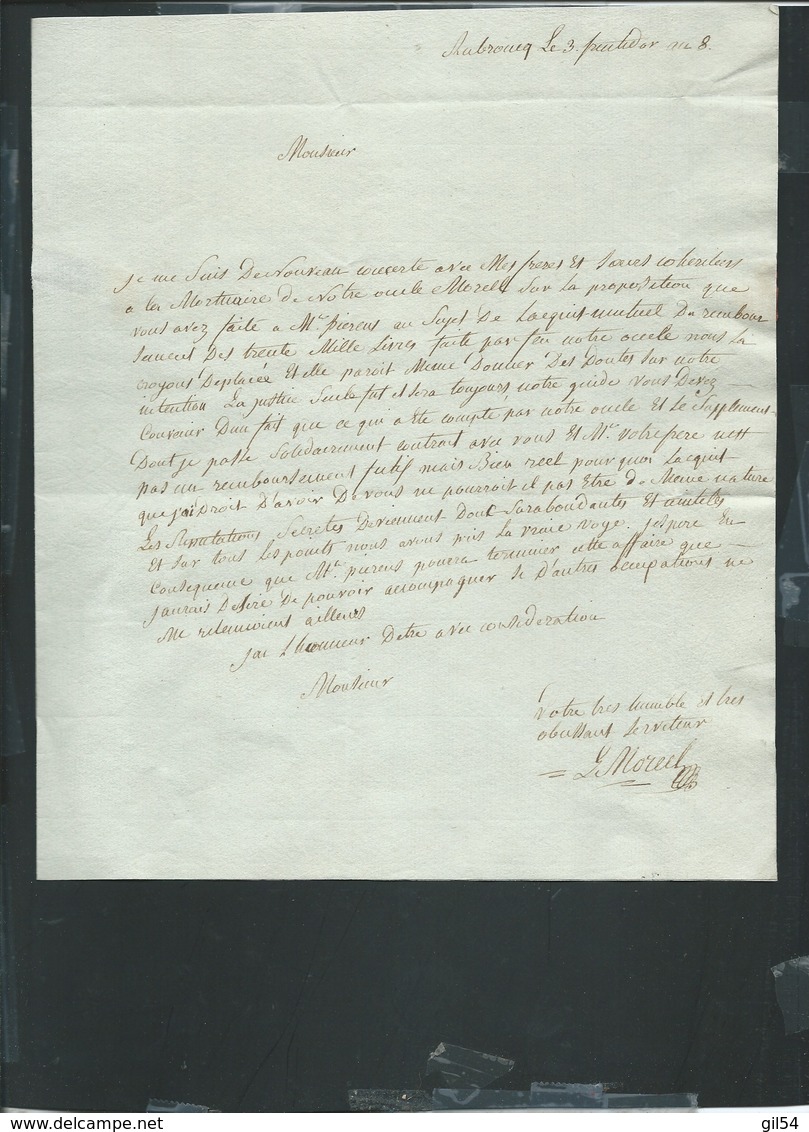 Rubroucq Le 3. fructidor an 8.
Monsieur
je me suis De Nouveau concerté avec Mes freres Et soeurs coheritiers
a la Mortuaire de Notre oncle Moreel sur la proposition que
vous avez faite a Mr. pierens au Sujet De Lacquit mutuel Du rembour
sement Des trente Mille Livres faite par feu notre oncle nous La
croyons Deplacée Et elle paroit Meme Donner Des Doutes sur notre
intention La justice Seule fut et sera toujours notre guide vous Devez
Convenir D'un fait que ce qui a été compté par notre oncle Et Le Supplement
Dont je passe Solidairement contrat avec vous Et Mr. votre pere n'est
pas un remboursement fictif mais Bien réel pourquoi Lacquit
que j'ai Droit D'avoir De vous ne pourroit il pas Etre de Meme nature
Les Secretes Deviennent Donc Surabondantes Et inutiles
Et sur tous Les points nous avons pris La vraie voye. j'espere En
Consequence que Mr. pierens pourra terminer cette affaire que
j'aurais Desiré De pouvoir accompagner si D'autres occupations ne
Me retenoient ailleurs
jai L'honneur Detre avec consideration
Monsieur
Votre tres humble et tres
obeissant serviteur
L Moreel
gil54